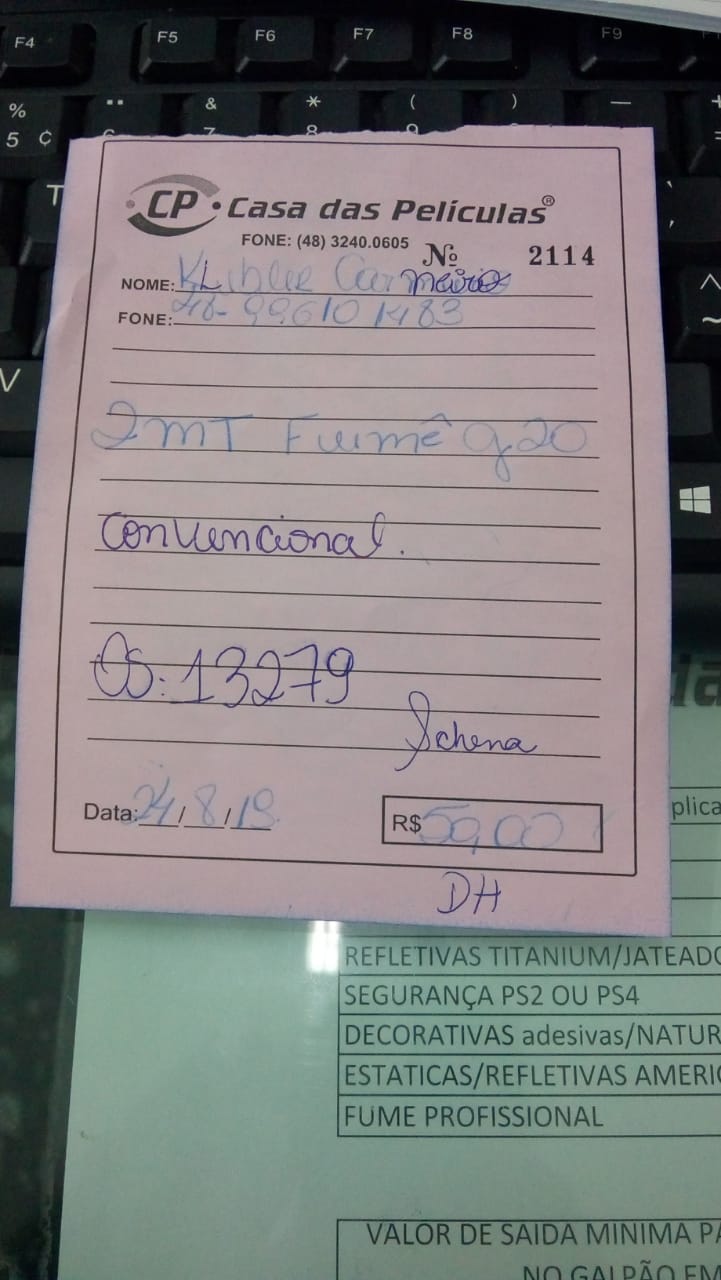 F4 F5 F6 F7 F8 F9
% 5 ¢ & 7 * 8 ( 9 )
T
V
CP • Casa das Películas®
FONE: (48) 3240.0605 Nº 2114
NOME: Carmeiro
FONE: 48-99610 1483
2MT Fumê g20
Convencional.
OS: 13279
Schena
Data: 24/8/19 R$ 50,00
DH
plica
REFLETIVAS TITANIUM/JATEADO
SEGURANÇA PS2 OU PS4
DECORATIVAS adesivas/NATUR
ESTATICAS/REFLETIVAS AMERIC
FUME PROFISSIONAL
VALOR DE SAIDA MINIMA PA
NO GALPÃO EM